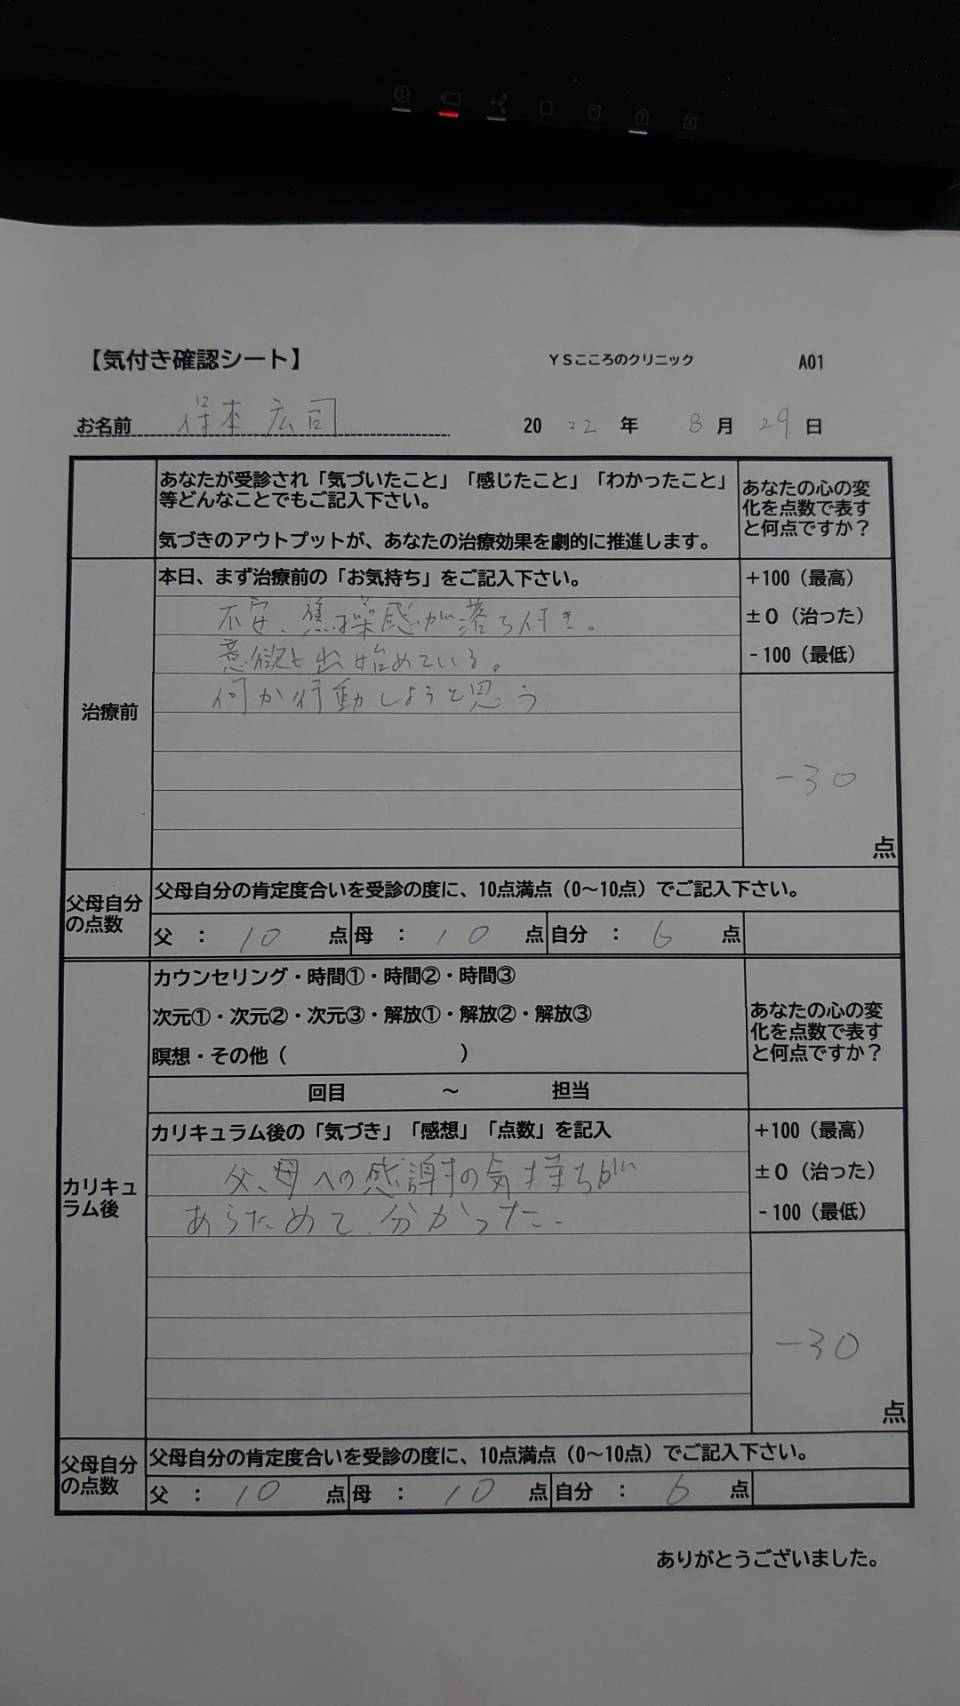 【気付き確認シート】 YSこころのクリニック A01
お名前 保本 広司 2022年 8月29日
あなたが受診され「気づいたこと」「感じたこと」「わかったこと」
等どんなことでもご記入下さい。
気づきのアウトプットが、あなたの治療効果を劇的に推進します。
あなたの心の変
化を点数で表す
と何点ですか？
治療前
本日、まず治療前の「お気持ち」をご記入下さい。
不安、焦操感が落ち付き。
意欲も出始めている。
何か行動しようと思う
+100（最高）
±0（治った）
-100（最低）
-30
点
父母自分
の点数
父母自分の肯定度合いを受診の度に、10点満点（0～10点）でご記入下さい。
父 ： 10 点 母 ： 10 点 自分 ： 6 点
カリキュ
ラム後
カウンセリング・時間①・時間②・時間③
次元①・次元②・次元③・解放①・解放②・解放③
瞑想・その他（ ）
回目 ～ 担当
あなたの心の変
化を点数で表す
と何点ですか？
カリキュラム後の「気づき」「感想」「点数」を記入
父、母への感謝の気持ちが
あらためて、分かった。
+100（最高）
±0（治った）
-100（最低）
-30
点
父母自分
の点数
父母自分の肯定度合いを受診の度に、10点満点（0～10点）でご記入下さい。
父 ： 10 点 母 ： 10 点 自分 ： 6 点
ありがとうございました。